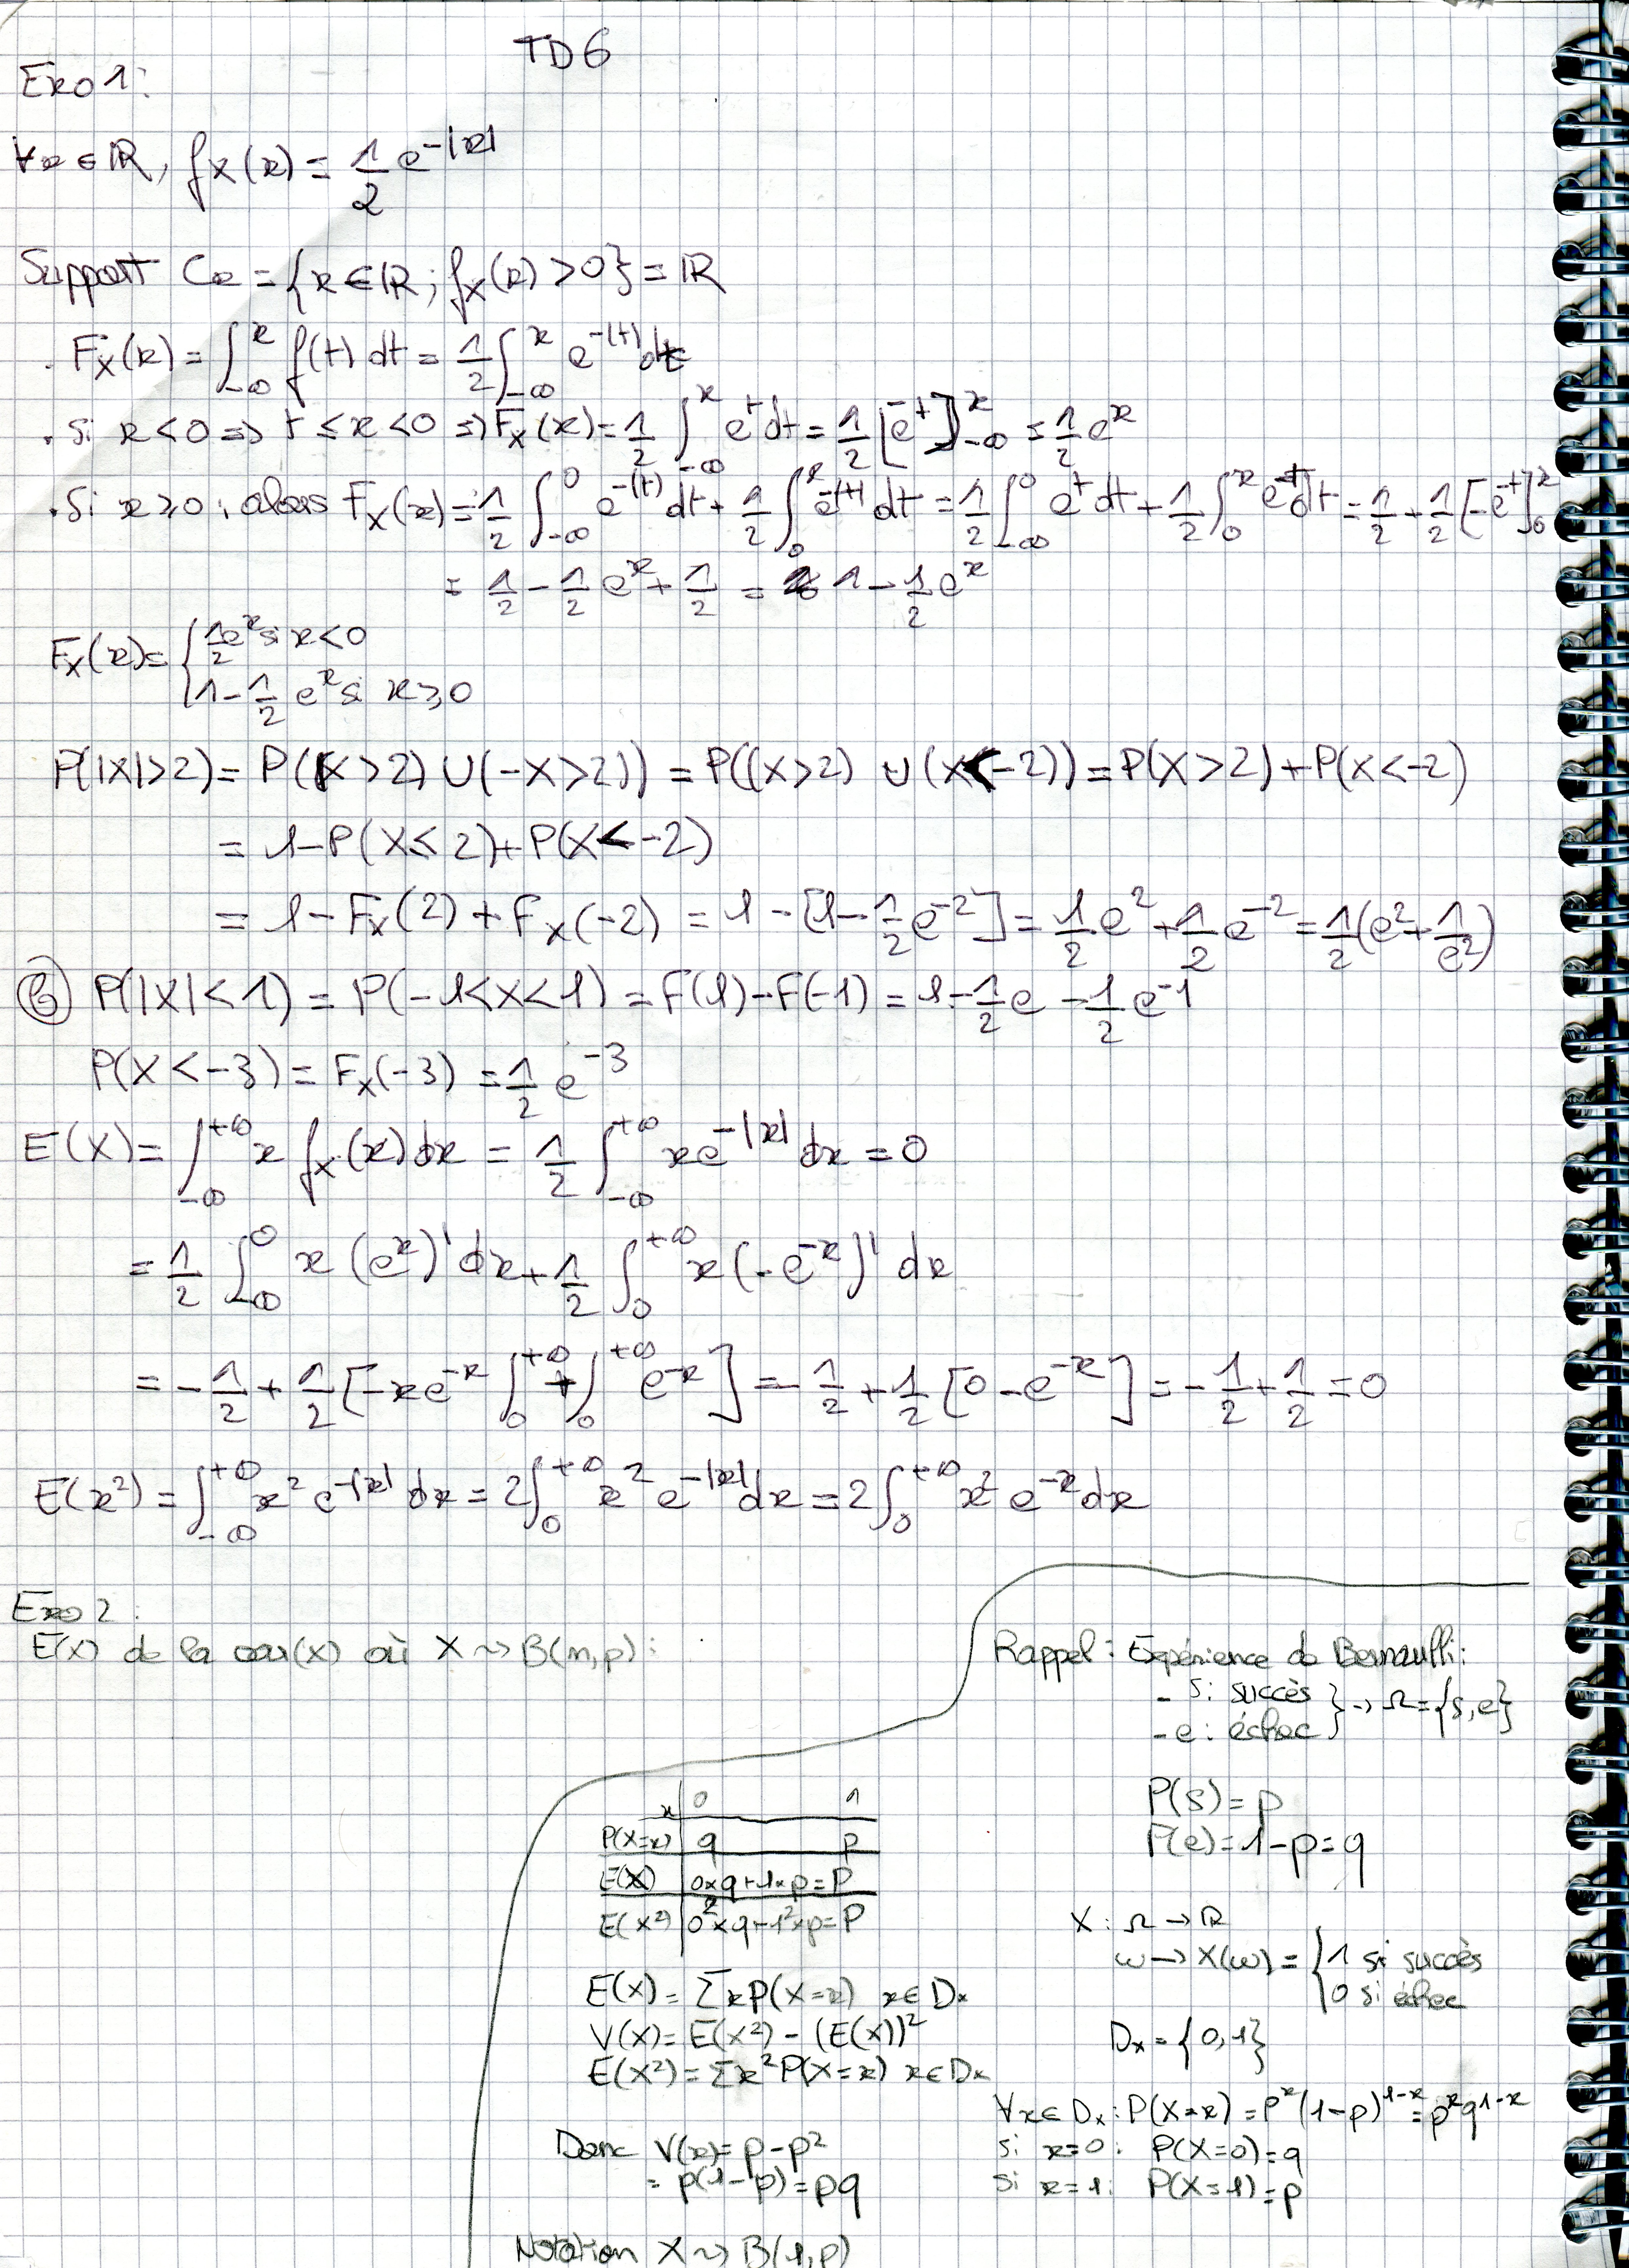 TD6
Exo 1:
∀x ∈ ℝ, fX(x) = 1/2 e^-|x|
Support Cx = {x ∈ ℝ ; fX(x) > 0} = ℝ
. FX(x) = ∫_-∞^x f(t) dt = 1/2 ∫_-∞^x e^-|t| dt
. Si x < 0 => t ≤ x < 0 => FX(x) = 1/2 ∫_-∞^x e^t dt = 1/2 [e^t]_-∞^x = 1/2 e^x
. Si x ≥ 0 : alors FX(x) = 1/2 ∫_-∞^0 e^-|t| dt + 1/2 ∫_0^x e^-|t| dt = 1/2 ∫_-∞^0 e^t dt + 1/2 ∫_0^x e^-t dt = 1/2 + 1/2 [-e^-t]_0^x
= 1/2 - 1/2 e^x + 1/2 = 1 - 1/2 e^x
FX(x) = { 1/2 e^x si x < 0
1 - 1/2 e^x si x ≥ 0
P(|X| > 2) = P((X > 2) ∪ (-X > 2)) = P((X > 2) ⊎ (X < -2)) = P(X > 2) + P(X < -2)
= 1 - P(X ≤ 2) + P(X < -2)
= 1 - FX(2) + FX(-2) = 1 - [1 - 1/2 e^-2] = 1/2 e^2 + 1/2 e^-2 = 1/2 (e^2 + 1/e^2)
P(|X| < 1) = P(-1 < X < 1) = F(1) - F(-1) = 1 - 1/2 e - 1/2 e^-1
P(X < -3) = FX(-3) = 1/2 e^-3
E(X) = ∫_-∞^+∞ x fX(x) dx = 1/2 ∫_-∞^+∞ x e^-|x| dx = 0
= 1/2 ∫_-∞^0 x (e^x)' dx + 1/2 ∫_0^+∞ x (-e^-x)' dx
= -1/2 + 1/2 [-x e^-x ∫_0^+∞ + ∫_0^+∞ e^-x] = -1/2 + 1/2 [0 - e^-x] = -1/2 + 1/2 = 0
E(x²) = ∫_-∞^+∞ x² e^-|x| dx = 2 ∫_0^+∞ x² e^-|x| dx = 2 ∫_0^+∞ x² e^-x dx
Exo 2 :
E(x) de la var(x) où X ~> B(n,p) :
Rappel : Expérience de Bernoulli :
- s : succès } -> Ω = {s, e}
- e : échec
P(s) = p
P(e) = 1 - p = q
X : Ω -> ℝ
ω -> X(ω) = { 1 si succès
0 si échec
Dx = {0, 1}
∀x ∈ Dx : P(X = x) = p^x (1-p)^1-x = p^x q^1-x
si x = 0 : P(X = 0) = q
si x = 1 : P(X = 1) = p
x | 0 1
P(X=x) | q p
E(X) | 0×q + 1×p = P
E(X²) | 0²×q + 1²×p = P
E(X) = Σ x P(X = x) x ∈ Dx
V(X) = E(X²) - (E(X))²
E(X²) = Σ x² P(X = x) x ∈ Dx
Donc V(x) = p - p²
= p(1 - p) = pq
Notation X ~> B(1,p)